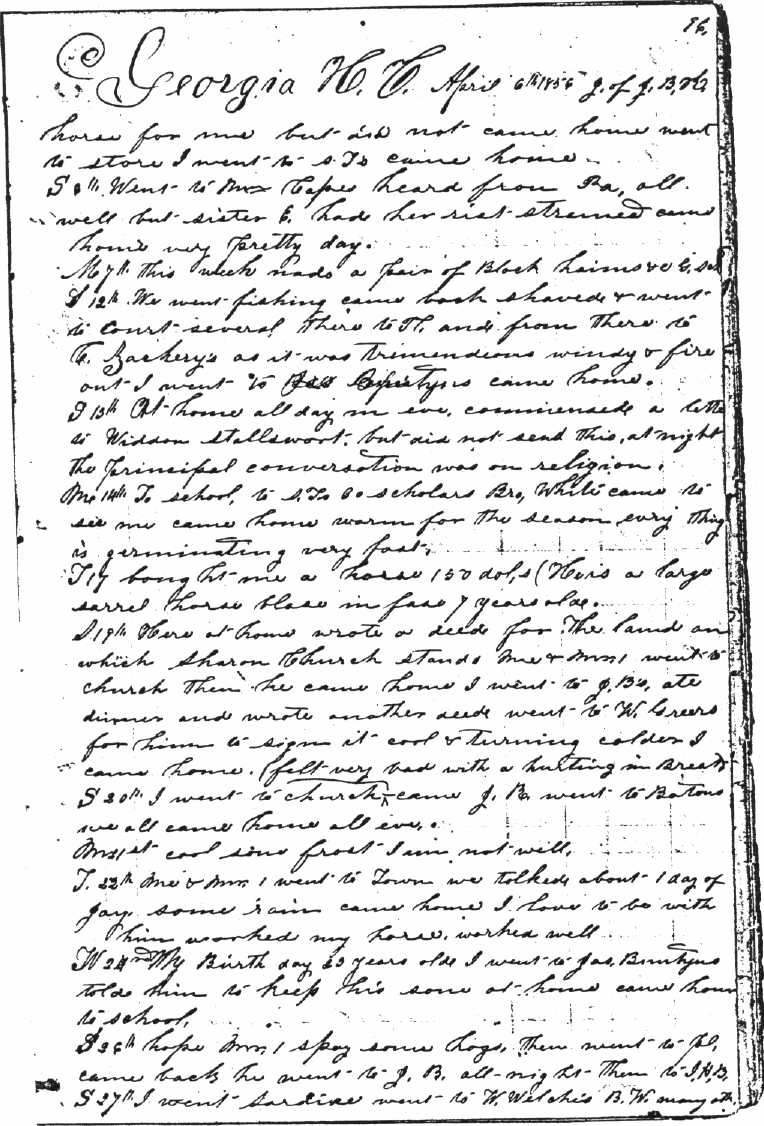 96.
Georgia H. C. April 6th 1856 J. of J. B. H.
horse for me but did not came home went
to store I went to S. Ts came home.
S 6th. Went to Mr Capes heard from Pa, all
well but sister E. had her rist strained came
home very pretty day.
M 7th this week made a pair of Block haims &c
S 12th. We went fishing came back shaved & went
to court several there to H. and from there to
C. Zackerys as it was trimendious windy & fire
out I went to came home.
S 13th At home all day in eve, commensed a lette
to Widdow Stallswort. but did not send this, at night
the principal conversation was on religion.
Mo 14th To school, to S. Ts 60 scholars Bro, White came to
see me came home warm for the season every thing
is germinating very fast.
T 17 bought me a horse 150 dol,s (He is a large
sarrel horse blase in fase 7 years old.
S 19th Here at home wrote a deed for the land on
which Sharon Church stands Me & Mr. 1 went to
church then he came home I went to J, Bs, ate
dinner and wrote another deed went to W. Greers
for him to sign it cool & turning colder I
came home. (felt very bad with a hurting in Breast
S 20th I went to church, came J. B. went to Batons
we all came home all eve,.
M 21st cool some frost I am not well,
T. 22th Me & Mr. 1 went to Town we tolked about 1 day of
jays some rain came home I love to be with
him worked my horse. worked well
W 23nd My Birth day 23 years old I went to Jas, Bruntyns
told him to keep his sone at home came hom
to school,
S 26th hope Mr. 1 spay some hogs, then went to Pl,
came back he went to J. B. all night then to J, H, B,
S 27th I went Sardise went to W. Welchis B. W. many oth.